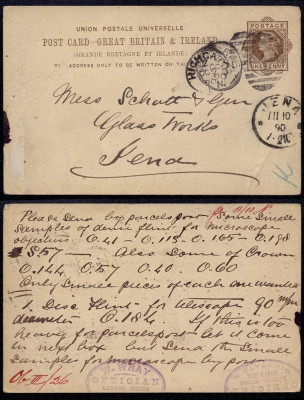 UNION POSTALE UNIVERSELLE
POST CARD-GREAT BRITAIN & IRELAND
(GRANDE BRETAGNE ET IRLANDE)
THE ADDRESS ONLY TO BE WRITTEN ON THIS
HIGHGATE
90
Mess Schott & Gen
Glass Works
Jena
JENA
11 10
90
1-2N
Please send by parcels post some small
samples of dense flint for microscope
objectives 0.41 - 0.113 - 0.165 - 0.198
S.57 - Also some of Crown
0.144 0.57 0.40 0.60
Only small pieces of each are wanted
1. Disc flint for telescope 90 m/m
diameter 0.184. If this is too
heavy for parcels post let it come
in next box but send the small
samples for microscope by post
W. WRAY
OPTICIAN